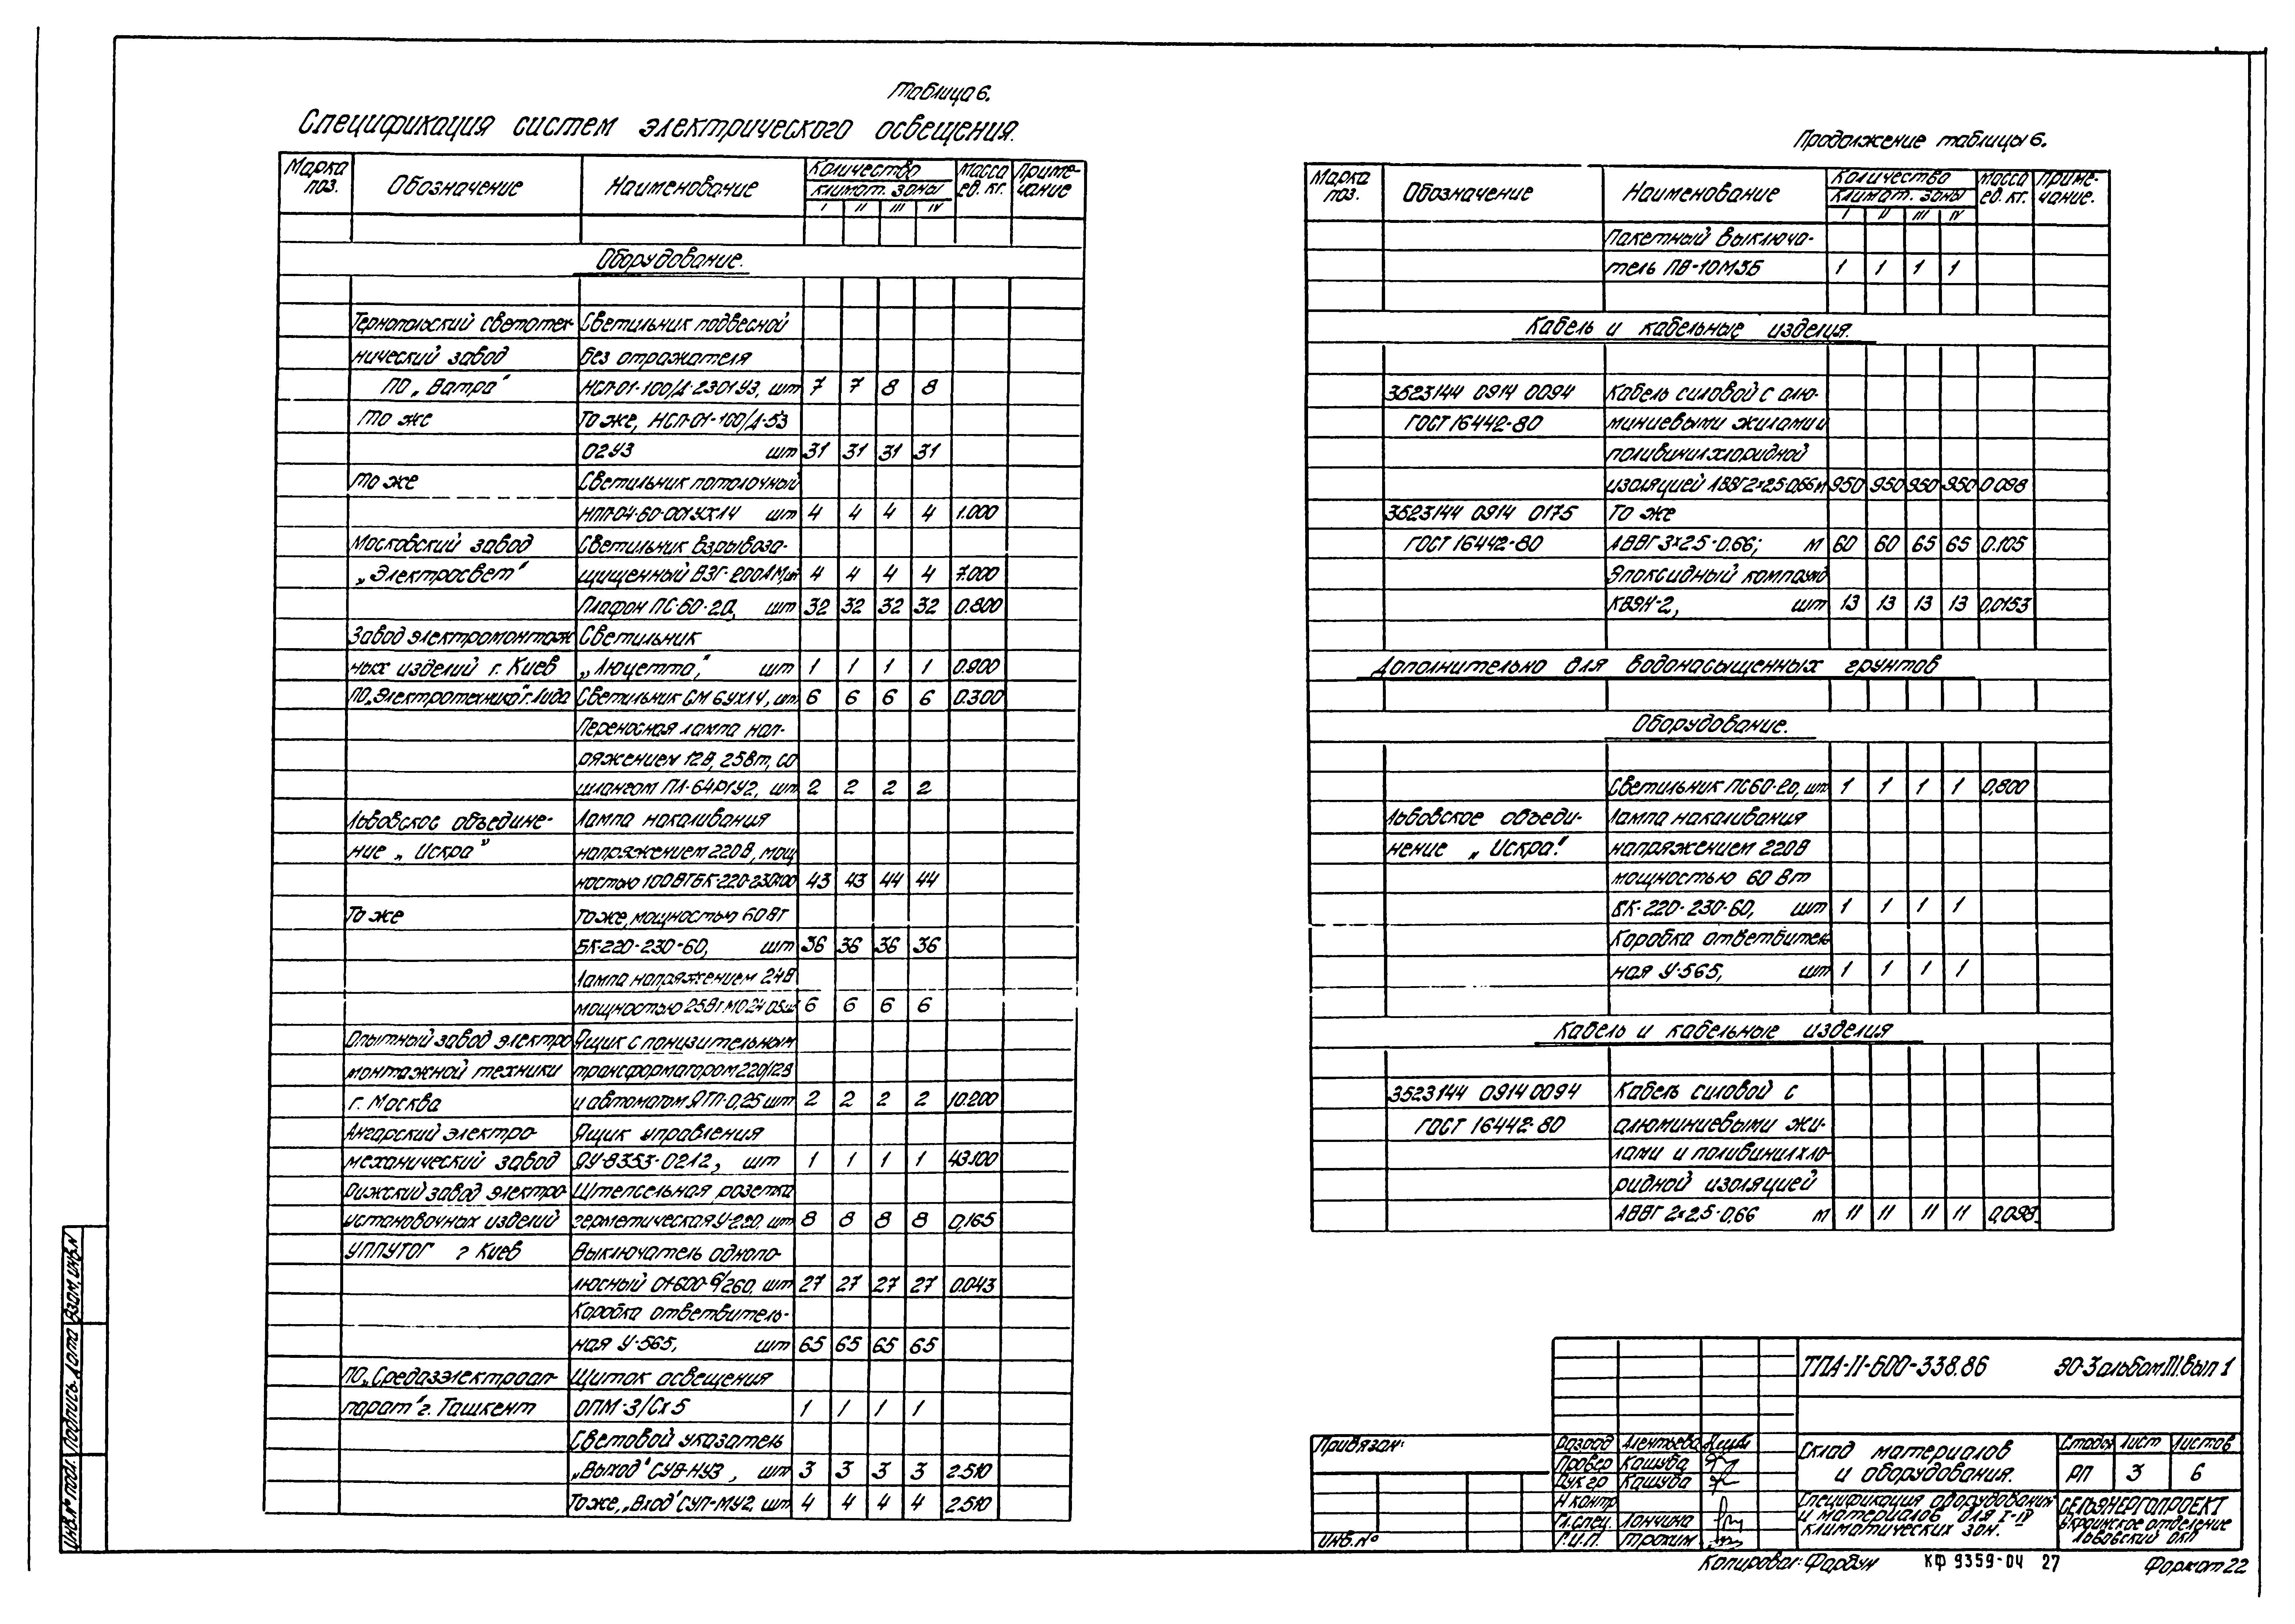 Таблица 6.
Спецификация систем электрического освещения.
Марка поз. Обозначение Наименование Количество Масса ед. кг. Приме-чание
климат. зоны
I II III IV
Оборудование.
Тернопольский светотех- Светильник подвесной
нический завод без отражателя
ПО „Ватра" НСП-01-100/Д-2301У3, шт 7 7 8 8
То же То же, НСП-01-100/Д-53
02У3 шт 31 31 31 31
То же Светильник потолочный
НПП-04-60-001УХЛ4 шт 4 4 4 4 1.000
Московский завод Светильник взрывоза-
„Электросвет" щищенный ВЗГ-200АМ, шт 4 4 4 4 7.000
Плафон ПС-60-20, шт 32 32 32 32 0.800
Завод электромонтаж Светильник
ных изделий г. Киев „Люцетта", шт 1 1 1 1 0.900
ПО„Электротехника" г. Лида Светильник СМ 6УХЛ4, шт 6 6 6 6 0.300
Переносная лампа нап-
ряжением 12В, 25Вт, со
шлангом ПЛ-64Р1У2, шт 2 2 2 2
Львовское объедине- Лампа накаливания
ние „Искра" напряжением 220В, мощ
ностью 100ВТ БК-220-230-100 43 43 44 44
То же То же, мощностью 60ВТ
БК-220-230-60, шт 36 36 36 36
Лампа напряжением 24В
мощностью 25Вт МО24 25 шт 6 6 6 6
Опытный завод электро Ящик с понизительным
монтажной техники трансформатором 220/12В
г. Москва и автоматом ЯТП-0,25 шт 2 2 2 2 10.200
Ангарский электро- Ящик управления
механический завод ЯУ-8353-0212, шт 1 1 1 1 43.100
Рижский завод электро Штепсельная розетка
установочных изделий герметическая У-220, шт 8 8 8 8 0,165
УППУТОГ г Киев Выключатель однопо-
люсный 01-600-6/260, шт 27 27 27 27 0.043
Коробка ответвитель-
ная У-565, шт 65 65 65 65
ПО„Средазэлектроап- Щиток освещения
парат" г. Ташкент ОПМ-3/Сх5 1 1 1 1
Световой указатель
„Выход" СУВ-НУ3, шт 3 3 3 3 2.510
То же, „Вход" СУП-МУ2, шт 4 4 4 4 2.510
Продолжение таблицы 6.
Марка поз. Обозначение Наименование Количество Масса ед. кг. Приме-чание.
климат. зоны
I II III IV
Пакетный выключа-
тель ПВ-10М3Б 1 1 1 1
Кабель и кабельные изделия.
3523144 0914 0094 Кабель силовой с алю-
ГОСТ 16442-80 миниевыми жилами и
поливинилхлоридной
изоляцией АВВГ2×2.5-0.66 м 950 950 950 950 0.098
3523144 0914 0175 То же
ГОСТ 16442-80 АВВГ 3×2.5-0.66; м 60 60 65 65 0.105
Эпоксидный компаунд
КВЭН-2, шт 13 13 13 13 0,0153
Дополнительно для водонасыщенных грунтов
Оборудование.
Светильник ПС60-20, шт 1 1 1 1 0,800
Львовское объеди- Лампа накаливания
нение „Искра". напряжением 220В
мощностью 60 Вт
БК-220-230-60, шт 1 1 1 1
Коробка ответвитель
ная У-565, шт 1 1 1 1
Кабель и кабельные изделия
3523144 0914 0094 Кабель силовой с
ГОСТ 16442-80 алюминиевыми жи-
лами и поливинилхло-
ридной изоляцией
АВВГ 2×2,5-0,66 м 11 11 11 11 0,098
ТПА-II-600-338.86 ЭО-3 альбом III. вып 1
Привязан:
Инв. №
Разраб Алентьева
Провер Кашуба
Рук гр Кашуба
Н контр
Гл. спец. Лончина
Г.И.П. Трохим
Склад материалов
и оборудования.
Стадия Лист Листов
РП 3 6
Спецификация оборудования
и материалов для I-IV
климатических зон.
СЕЛЬЭНЕРГОПРОЕКТ
Украинское отделение
Львовский ОКП
Копировал: Фарбун КФ 9359-04 27 Формат 22
Инв. № подл. Подпись. Дата Взам. инв. N